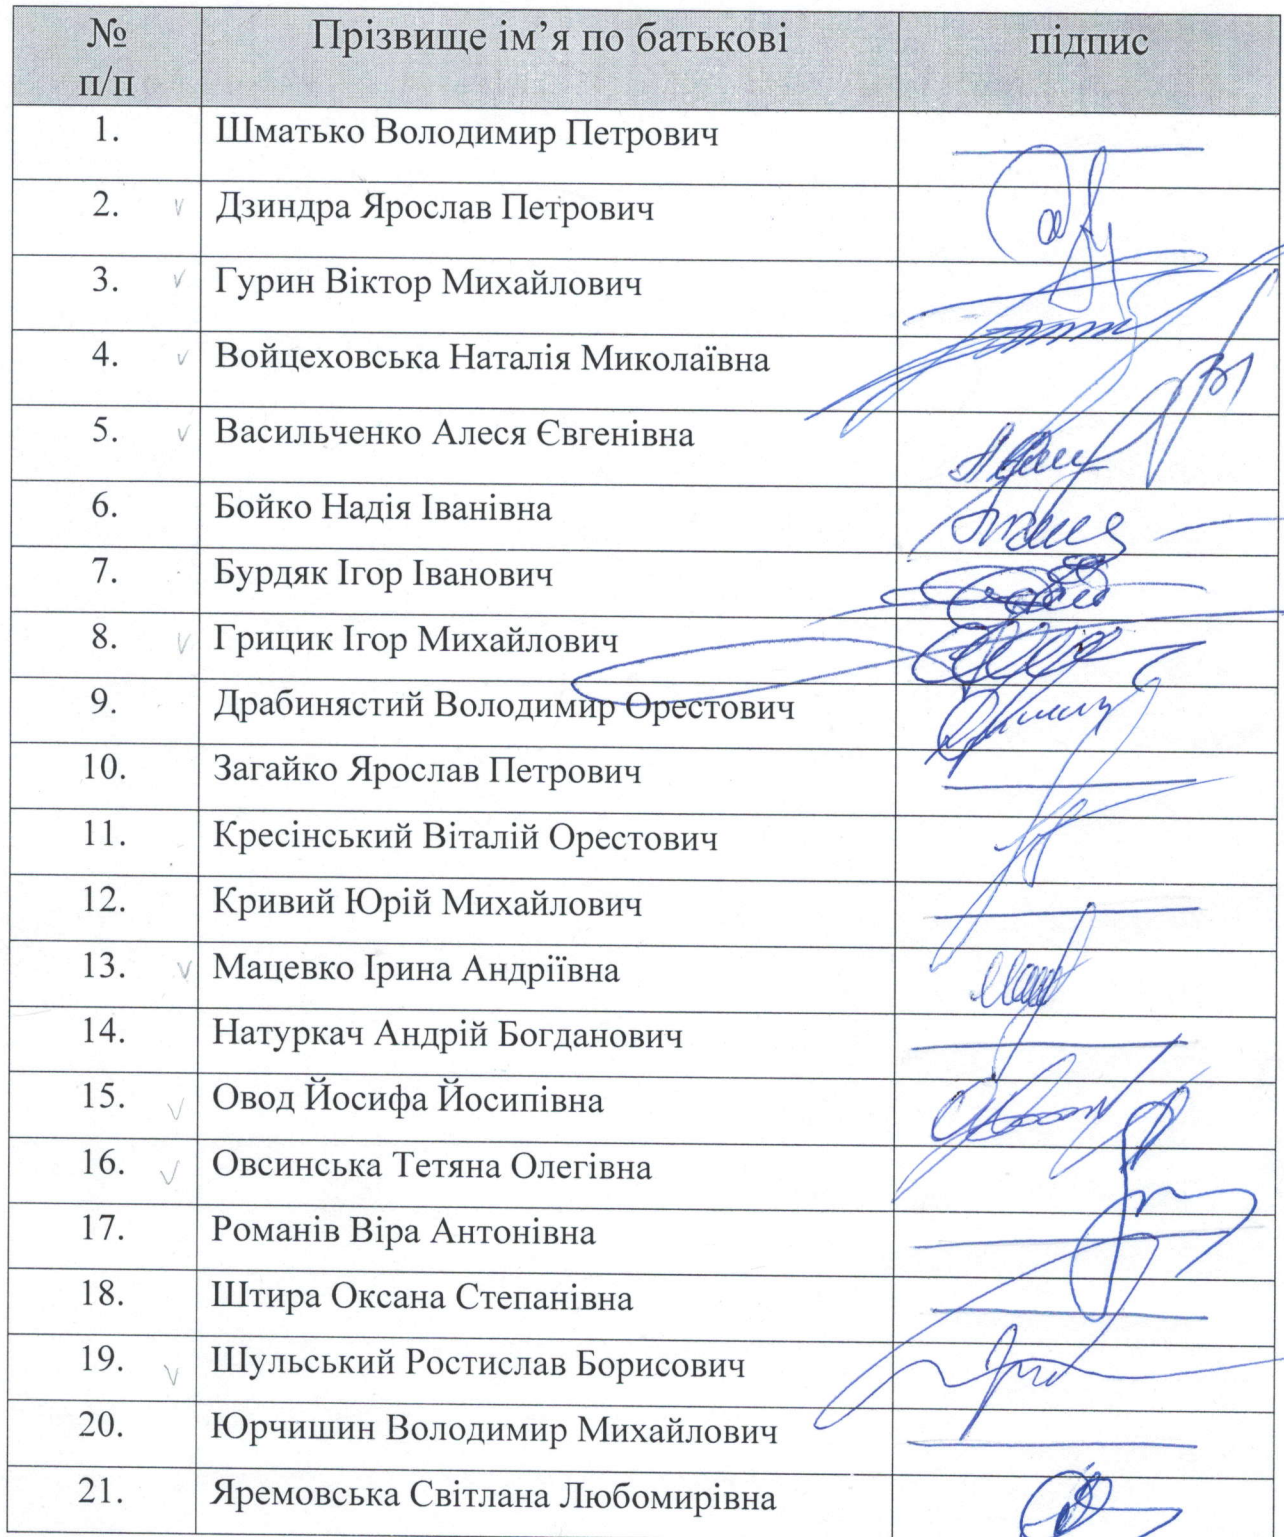 № п/п Прізвище ім’я по батькові підпис
1. Шматько Володимир Петрович
2. Дзиндра Ярослав Петрович
3. Гурин Віктор Михайлович
4. Войцеховська Наталія Миколаївна
5. Васильченко Алеся Євгенівна
6. Бойко Надія Іванівна
7. Бурдяк Ігор Іванович
8. Грицик Ігор Михайлович
9. Драбинястий Володимир Орестович
10. Загайко Ярослав Петрович
11. Кресінський Віталій Орестович
12. Кривий Юрій Михайлович
13. Мацевко Ірина Андріївна
14. Натуркач Андрій Богданович
15. Овод Йосифа Йосипівна
16. Овсинська Тетяна Олегівна
17. Романів Віра Антонівна
18. Штира Оксана Степанівна
19. Шульський Ростислав Борисович
20. Юрчишин Володимир Михайлович
21. Яремовська Світлана Любомирівна